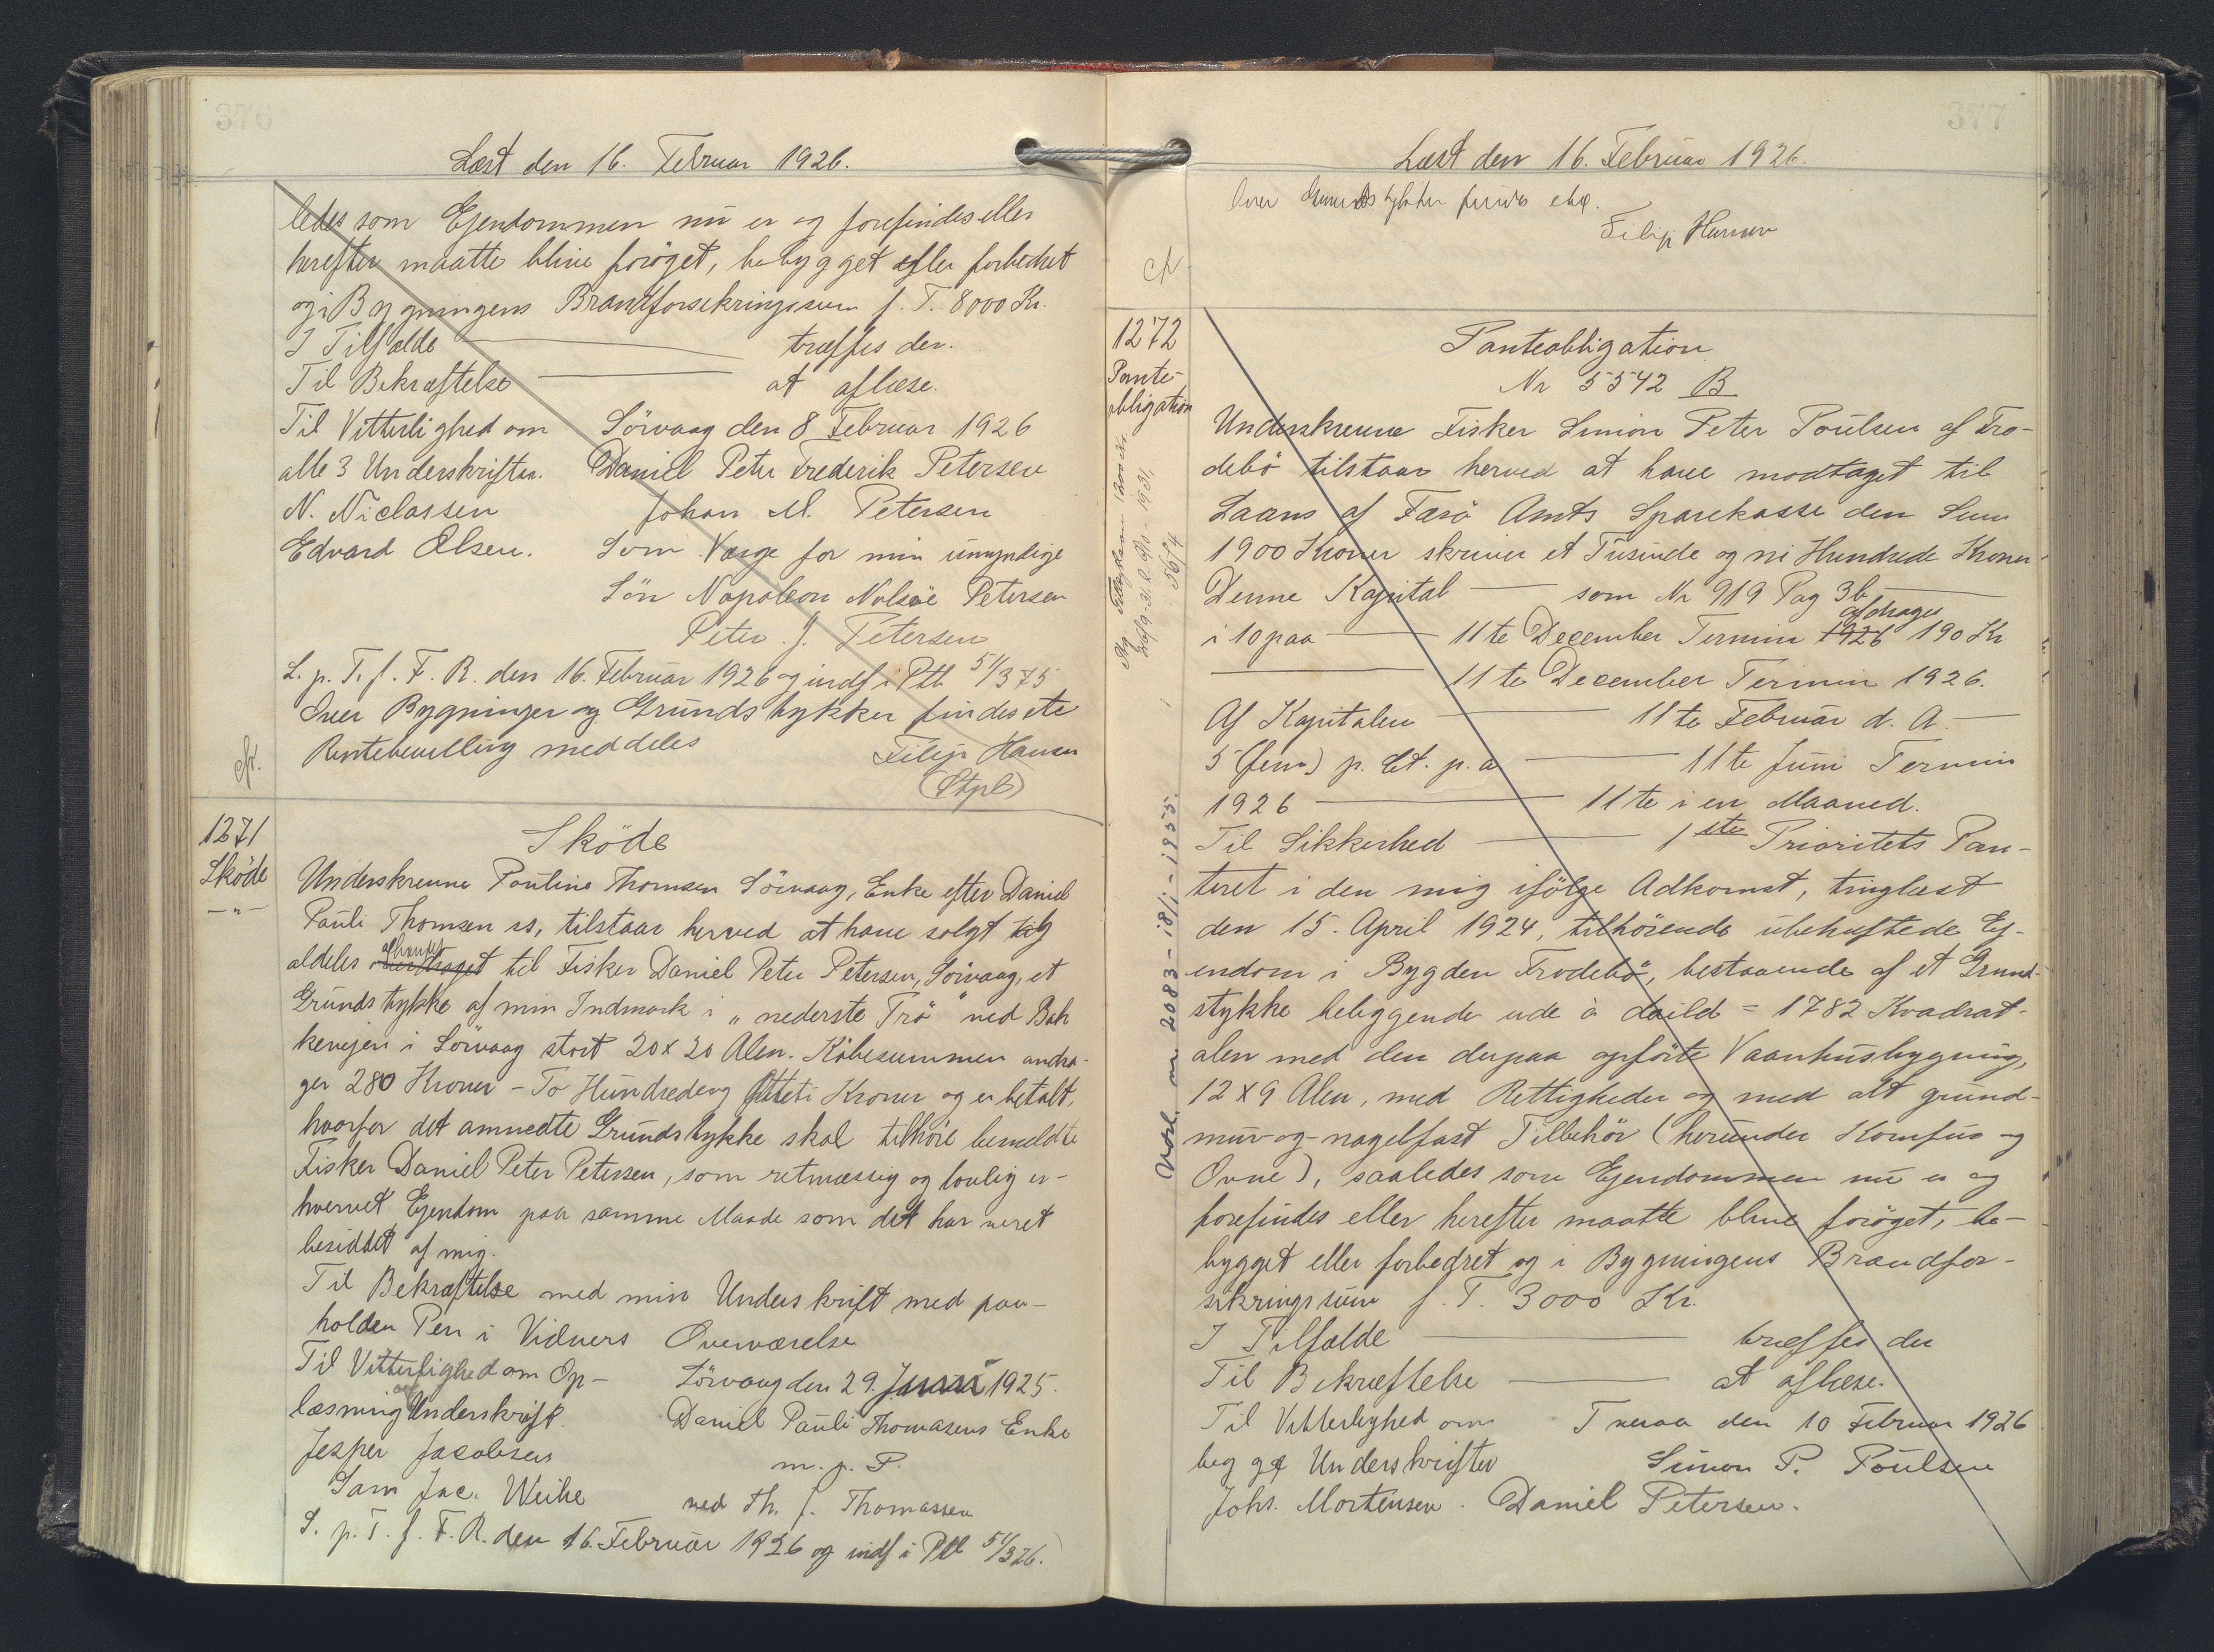 376
Læst den 16. Februar 1926.
ledes som Ejendommen nu er og forefindes eller
herefter maatte blive forøget, bebygget eller forbedret
og i Bygningens Brandforsikringssum f. T. 8000 Kr.
I Tilfælde — træffes der.
Til Bekræftelse — at aflæse.
Til Vitterlighed om Sörvaag den 8 Februar 1926
alle 3 Underskrifter. Daniel Peter Frederik Petersen
N. Niclassen Johan M. Petersen
Edvard Olsen. Som Værge for min umyndige
Sön Napoleon Nolsöe Petersen
Peter J. Petersen
L. p. T. f. F. R. den 16. Februar 1926 og indf i Ptb 51/375
Over Bygninger og Grundstykker findes etc
Rentebevilling meddeles Filip Hansen
(Stpl)
cfr.
1271
Sköde
-"-
Sköde
Underskrevne Pouline Thomsen Sörvaag, Enke efter Daniel
Pauli Thomsen ss, tilstaar herved at have solgt og
aldeles afhændet til Fisker Daniel Peter Petersen, Sörvaag, et
Grundstykke af min Indmark i „nederste Trö" ved Bak
kevejen i Sörvaag stort 20 x 20 Alen. Köbesummen andra-
ger 280 Kroner - To Hundrede og Otteti Kroner og er betalt,
hvorfor det ommedte Grundstykke skal tilhöre bemeldte
Fisker Daniel Peter Petersen, som retmæssig og lovlig er-
hvervet Ejendom paa samme Maade som det har været
besiddet af mig.
Til Bekræftelse med min Underskrift med paa-
holden Pen i Vidners Overværelse
Til Vitterlighed om Op- Sörvaag den 29. 1925.
læsning og Underskrift. Daniel Pauli Thomasens Enke
Jesper Jacobsen m. p. P.
Sam Jac. Weihe ved Th. J. Thomassen
L. p. T. f. F. R. den 16. Februar 1926 og indf i Ptb 51/376.
377
Læst den 16. Februar 1926.
Over Grundstykket findes etc.
Filip Hansen
cfr
1272
Pante-
obligation
Panteobligation
Nr 5542 B
Underskrevne Fisker Simon Peter Poulsen af Fro-
debö tilstaar herved at have modtaget til
Laans af Færö Amts Sparekasse den Sum
1900 Kroner skriver et Tusinde og ni Hundrede Kroner
Denne Kapital — som Nr 919 Pag 36 —
afdrages
i 10 paa — 11te December Termin 1926 190 Kr
— 11te December Termin 1926.
Af Kapitalen — 11te Februar d. A. —
5 (fem) p. Ct. p. a — 11te Juni Termin
1926 — 11te i en Maaned.
Til Sikkerhed — 1ste Prioritets Pan-
teret i den mig ifölge Adkomst, tinglæst
den 15. April 1924, tilhörende ubehæftede Ej-
endom i Bygden Frodebö, bestaaende af et Grund-
stykke beliggende ude à daild = 1782 Kvadrat-
alen med den derpaa opförte Vaanhusbygning,
12 x 9 Alen, med Rettigheder og med alt grund-
mur- og nagelfast Tilbehör (herunder Komfur og
Ovne), saaledes som Ejendommen nu er og
forefindes eller herefter maatte blive forøget, be-
bygget eller forbedret og i Bygningens Brandfor-
sikringssum f. T. 3000 Kr.
I Tilfælde — træffes der
Til Bekræftelse — at aflæse.
Til Vitterlighed om Tveraa den 10 Februar 1926
begge Underskrifter Simon P. Poulsen
Johs. Mortensen. Daniel Petersen.
nr. 2083 - 18/1 - 1955.